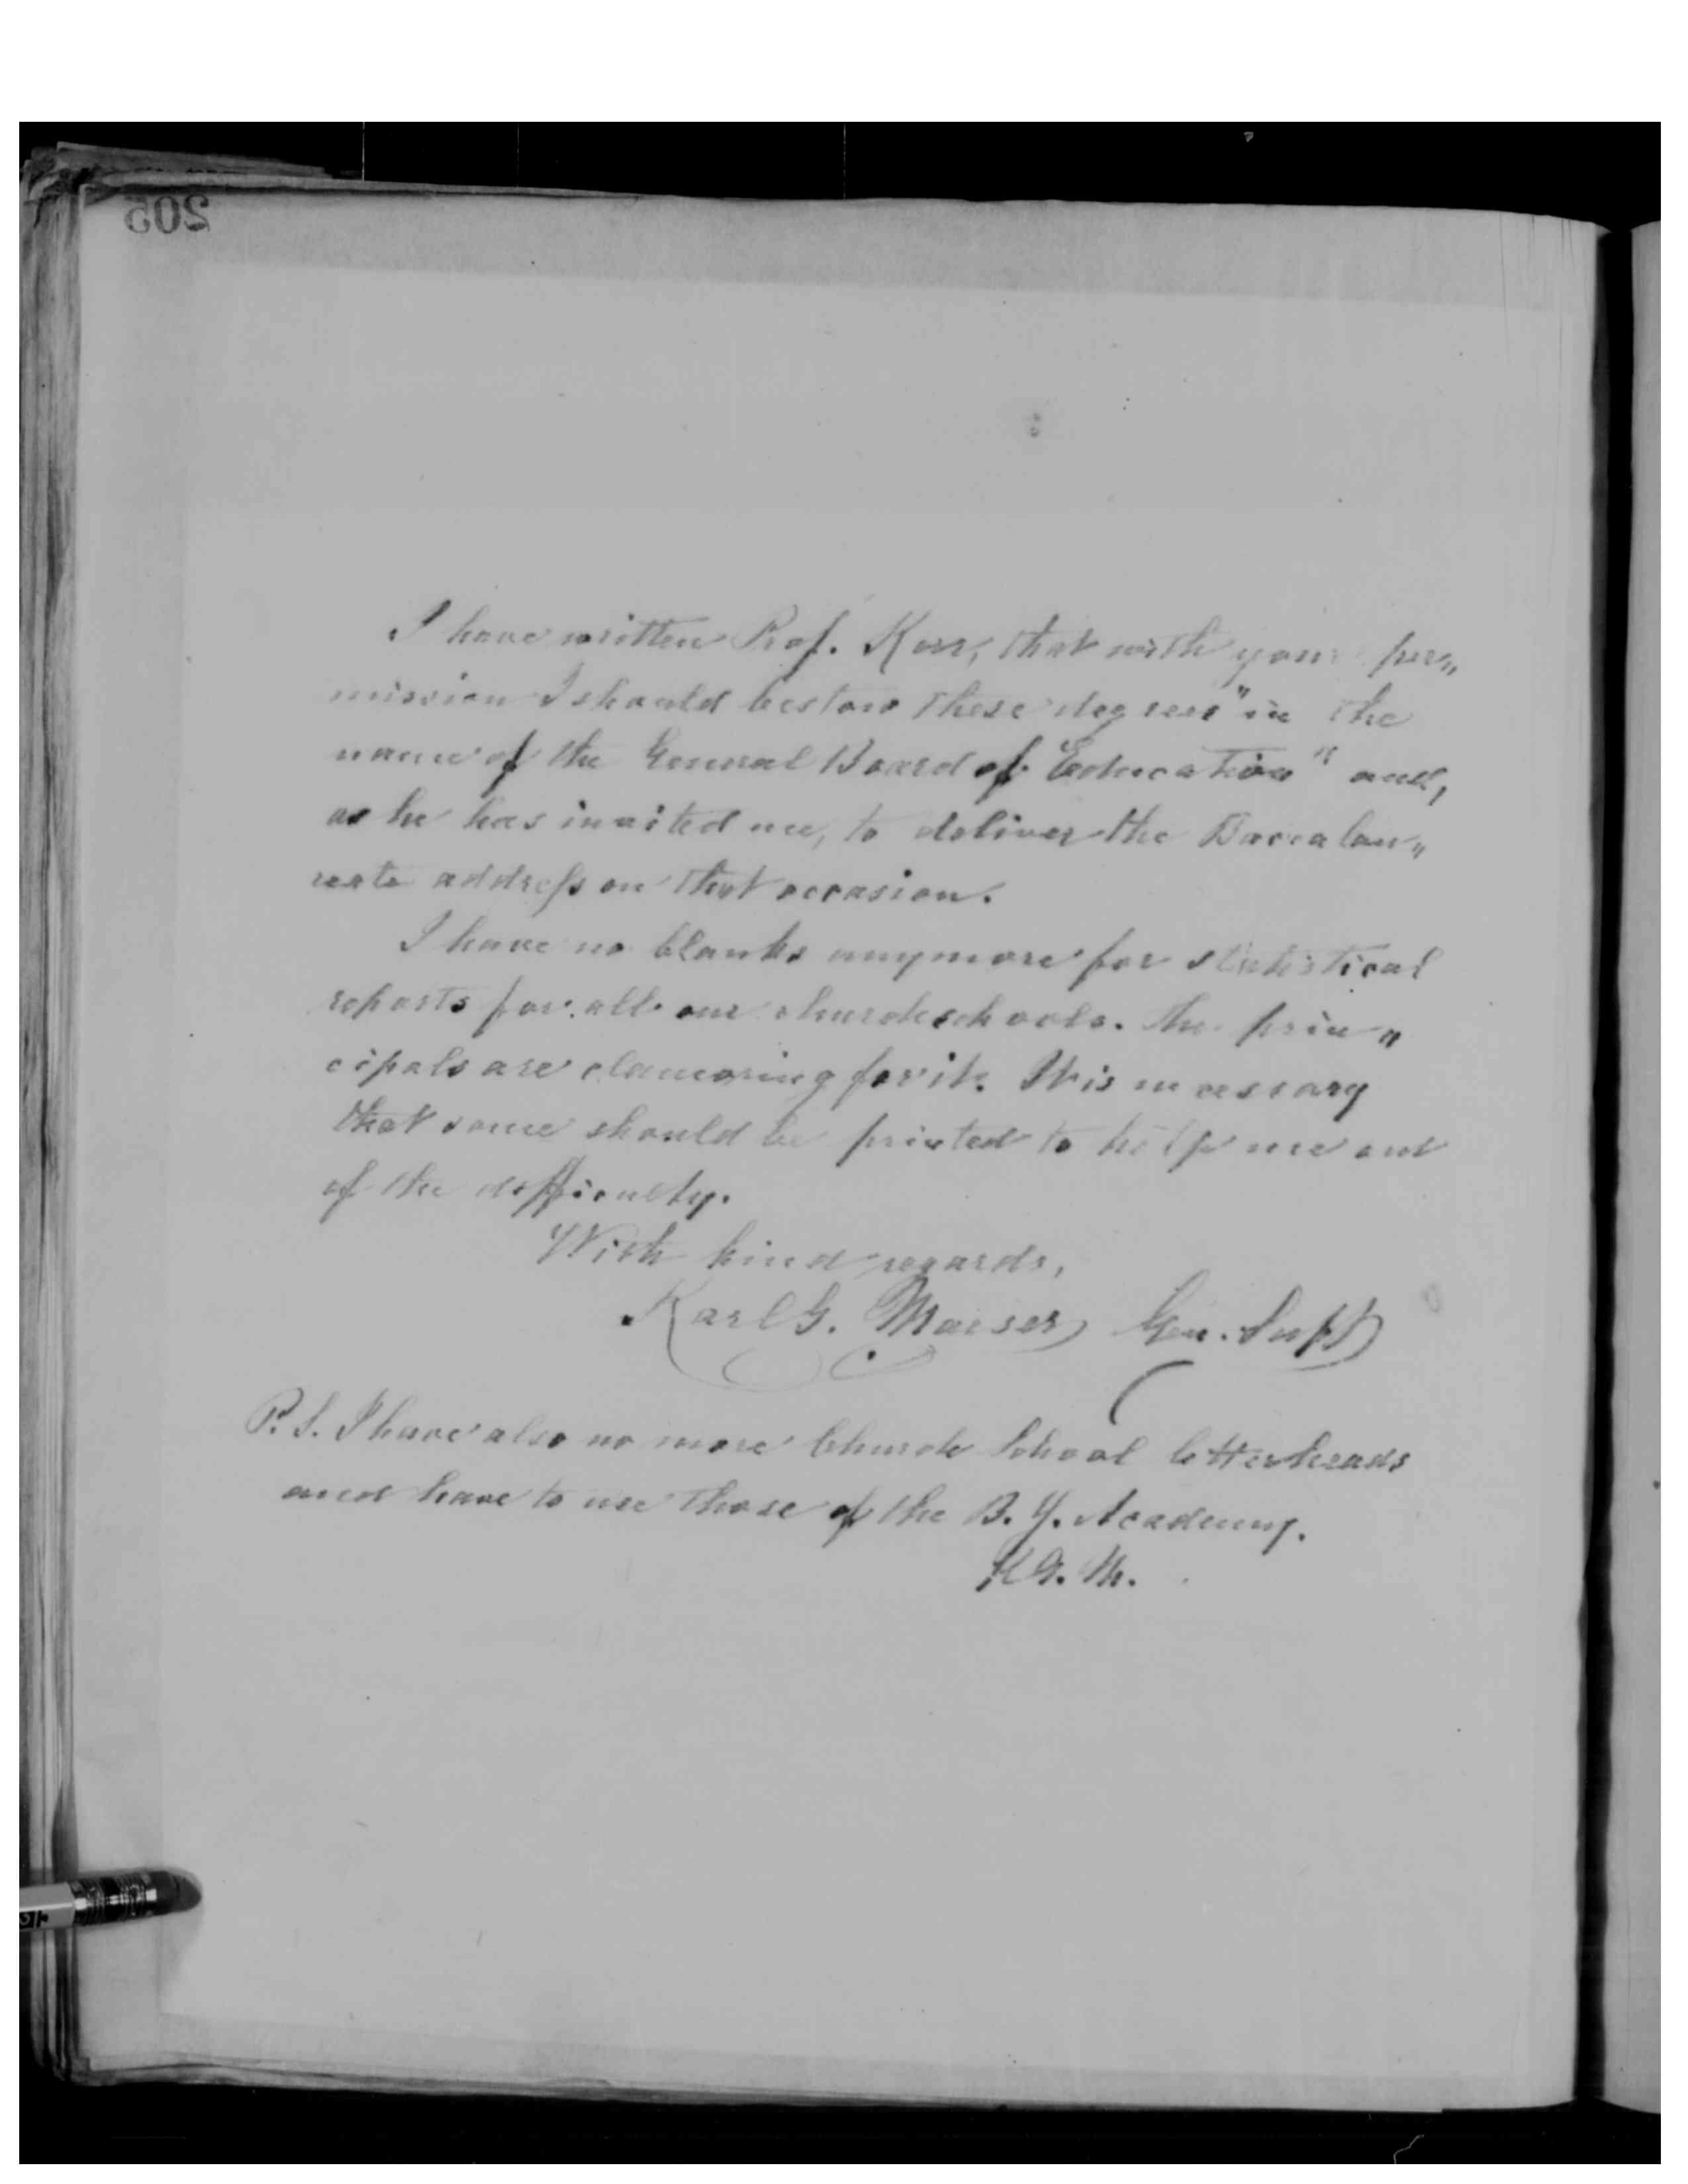 205
I have written Prof. Kerr, that with your per„
mission I should bestow these degrees "in the
name of the General Board of Education" and,
as he has invited me, to deliver the Baccalau„
reate address on that occasion.
I have no blanks anymore for statistical
reports for all our church schools. The prin„
cipals are clamoring for it. It is necessary
that some should be printed to help me out
of the difficulty.
With kind regards,
Karl G. Maeser Gen. Supt
P. S. I have also no more Church School letterheads
and have to use those of the B. Y. Academy.
K G. M.